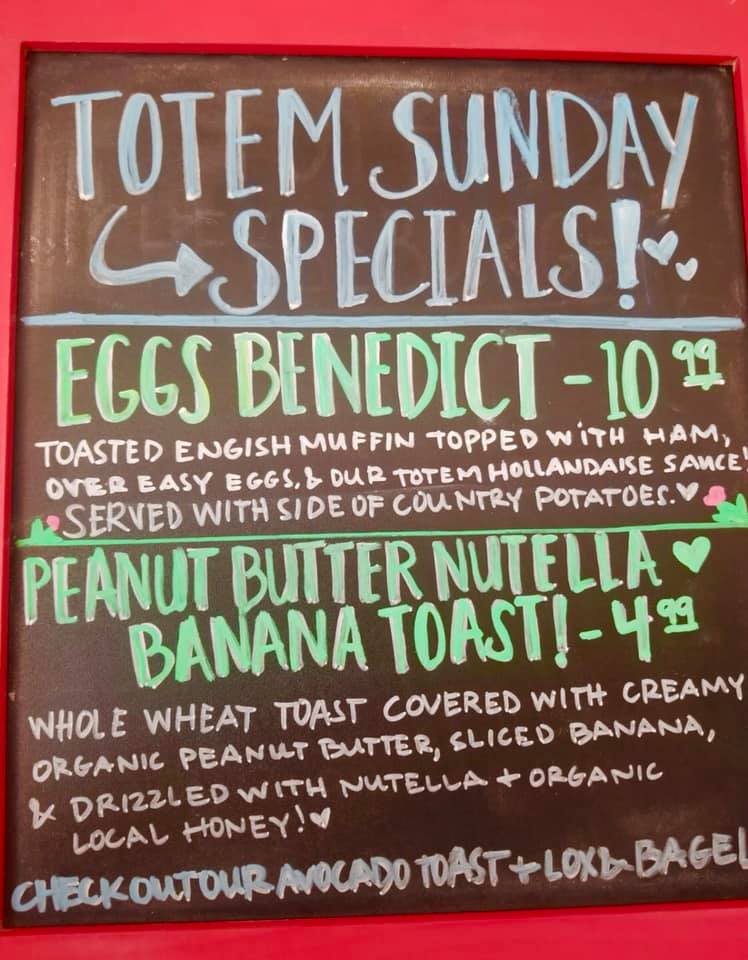 TOTEM SUNDAY
SPECIALS!
EGGS BENEDICT - 10 99
TOASTED ENGISH MUFFIN TOPPED WITH HAM,
OVER EASY EGGS, & OUR TOTEM HOLLANDAISE SAUCE!
SERVED WITH SIDE OF COUNTRY POTATOES.
PEANUT BUTTER NUTELLA
BANANA TOAST! - 4 99
WHOLE WHEAT TOAST COVERED WITH CREAMY
ORGANIC PEANUT BUTTER, SLICED BANANA,
& DRIZZLED WITH NUTELLA + ORGANIC
LOCAL HONEY!
CHECK OUT OUR AVOCADO TOAST + LOX & BAGEL